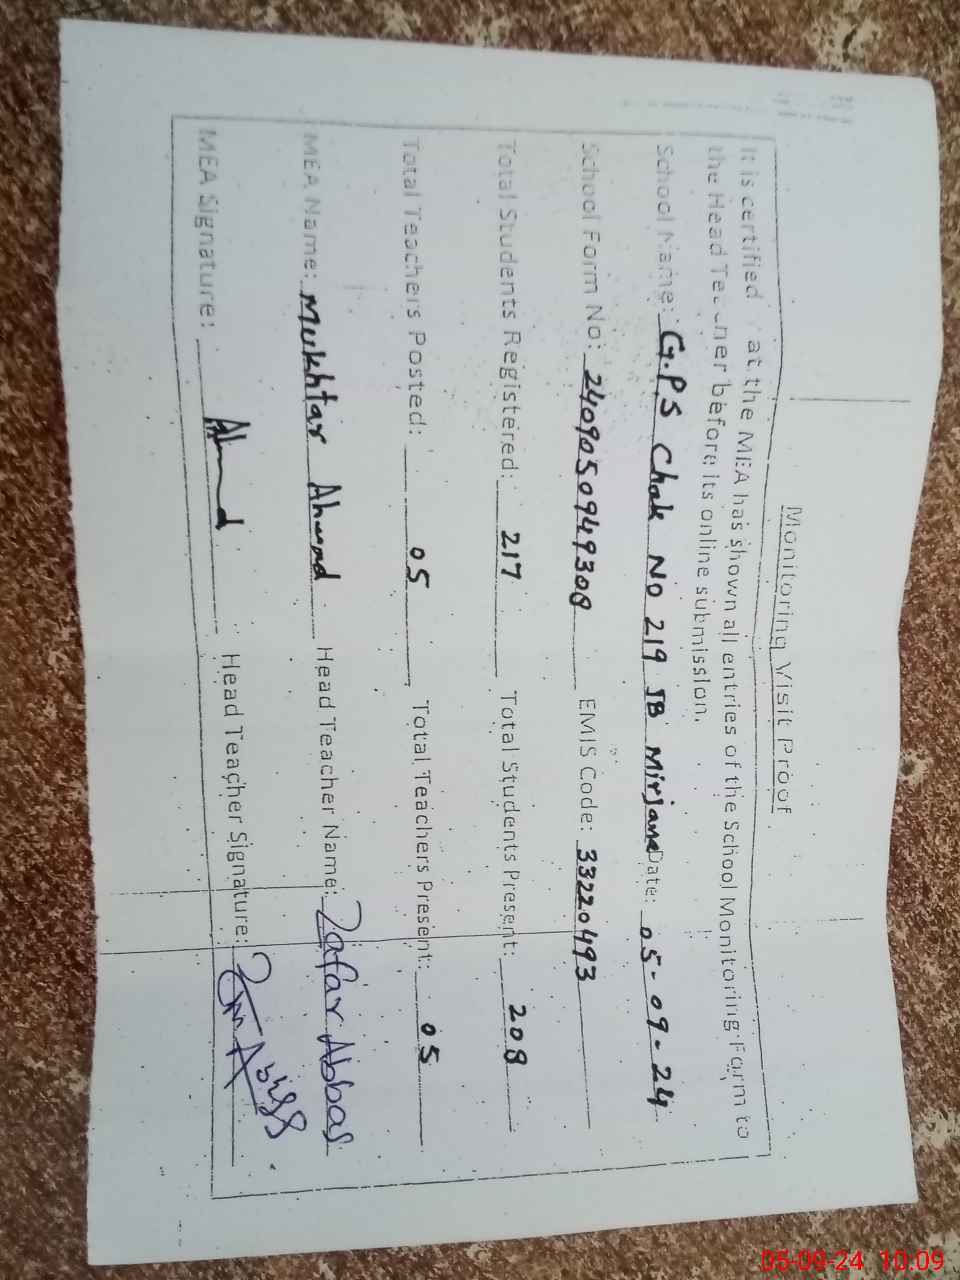 Monitoring Visit Proof
It is certified at the MEA has shown all entries of the School Monitoring Form to
the Head Teacher before its online submission.
School Name: G.PS Chak NO 219 JB Mirjana Date: 05-09-24
School Form No: 2409050949308 EMIS Code: 33220493
Total Students Registered: 217 Total Students Present: 208
Total Teachers Posted: 05 Total Teachers Present: 05
MEA Name: Mukhtar Ahmad Head Teacher Name: Zafar Abbas
MEA Signature: Head Teacher Signature:
05-09-24 10:09